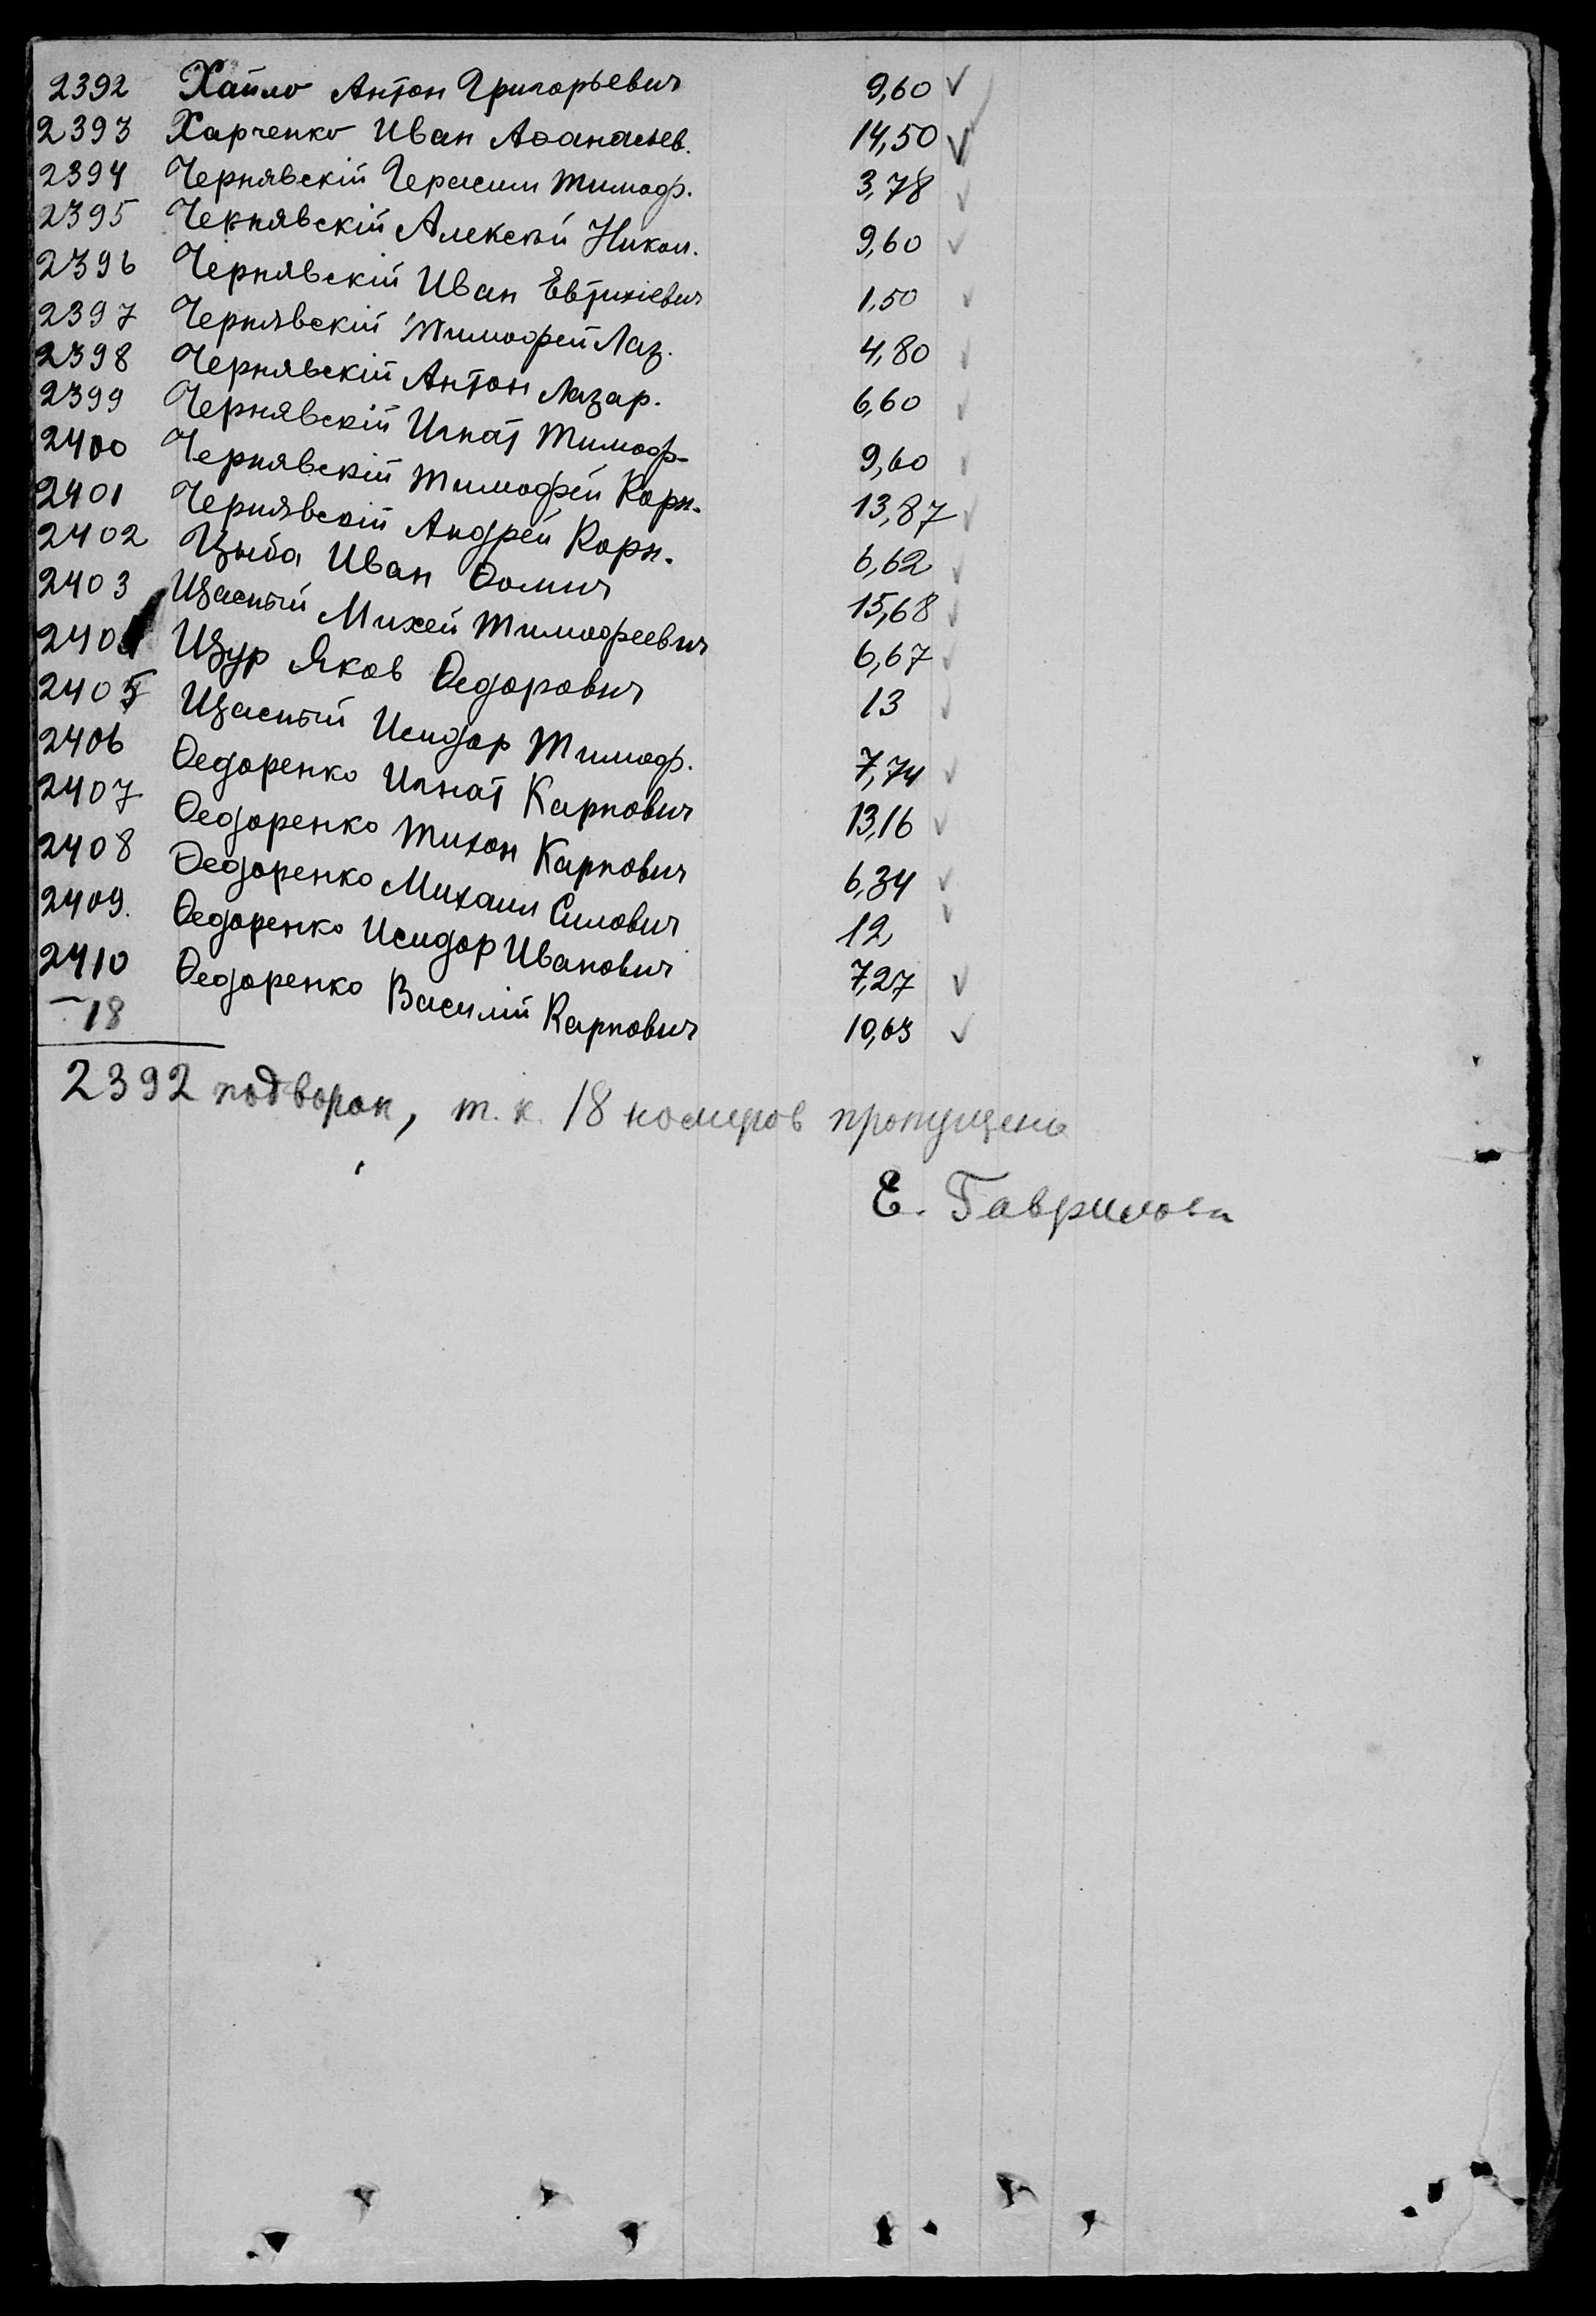 2392 Хайло Антон Григорьевич 9,60 ✓
2393 Харченко Иван Аѳанасьев. 14,50 ✓
2394 Чернявскій Герасим Тимоф. 3,78 ✓
2395 Чернявскій Алексѣй Никол. 9,60 ✓
2396 Чернявскій Иван Евтихіевич 1,50 ✓
2397 Чернявскій Тимофей Лаз. 4,80 ✓
2398 Чернявскій Антон Лазар. 6,60 ✓
2399 Чернявскій Игнат Тимоф. 9,60 ✓
2400 Чернявскій Тимофей Корн. 13,87 ✓
2401 Чернявскій Андрей Корн. 6,62 ✓
2402 Цыба Иван Ѳомич 15,68 ✓
2403 Щасный Михей Тимофеевич 6,67 ✓
2404 Щур Яков Ѳедорович 13 ✓
2405 Щасный Исидор Тимоф. 7,74 ✓
2406 Ѳедоренко Игнат Карпович 13,16 ✓
2407 Ѳедоренко Тихон Карпович 6,34 ✓
2408 Ѳедоренко Михаил Силович 12 ✓
2409. Ѳедоренко Исидор Иванович 7,27 ✓
2410 Ѳедоренко Василій Карпович 10,63 ✓
– 18
2392 подворок, т.к. 18 номеров пропущено
Е. Гаврилова